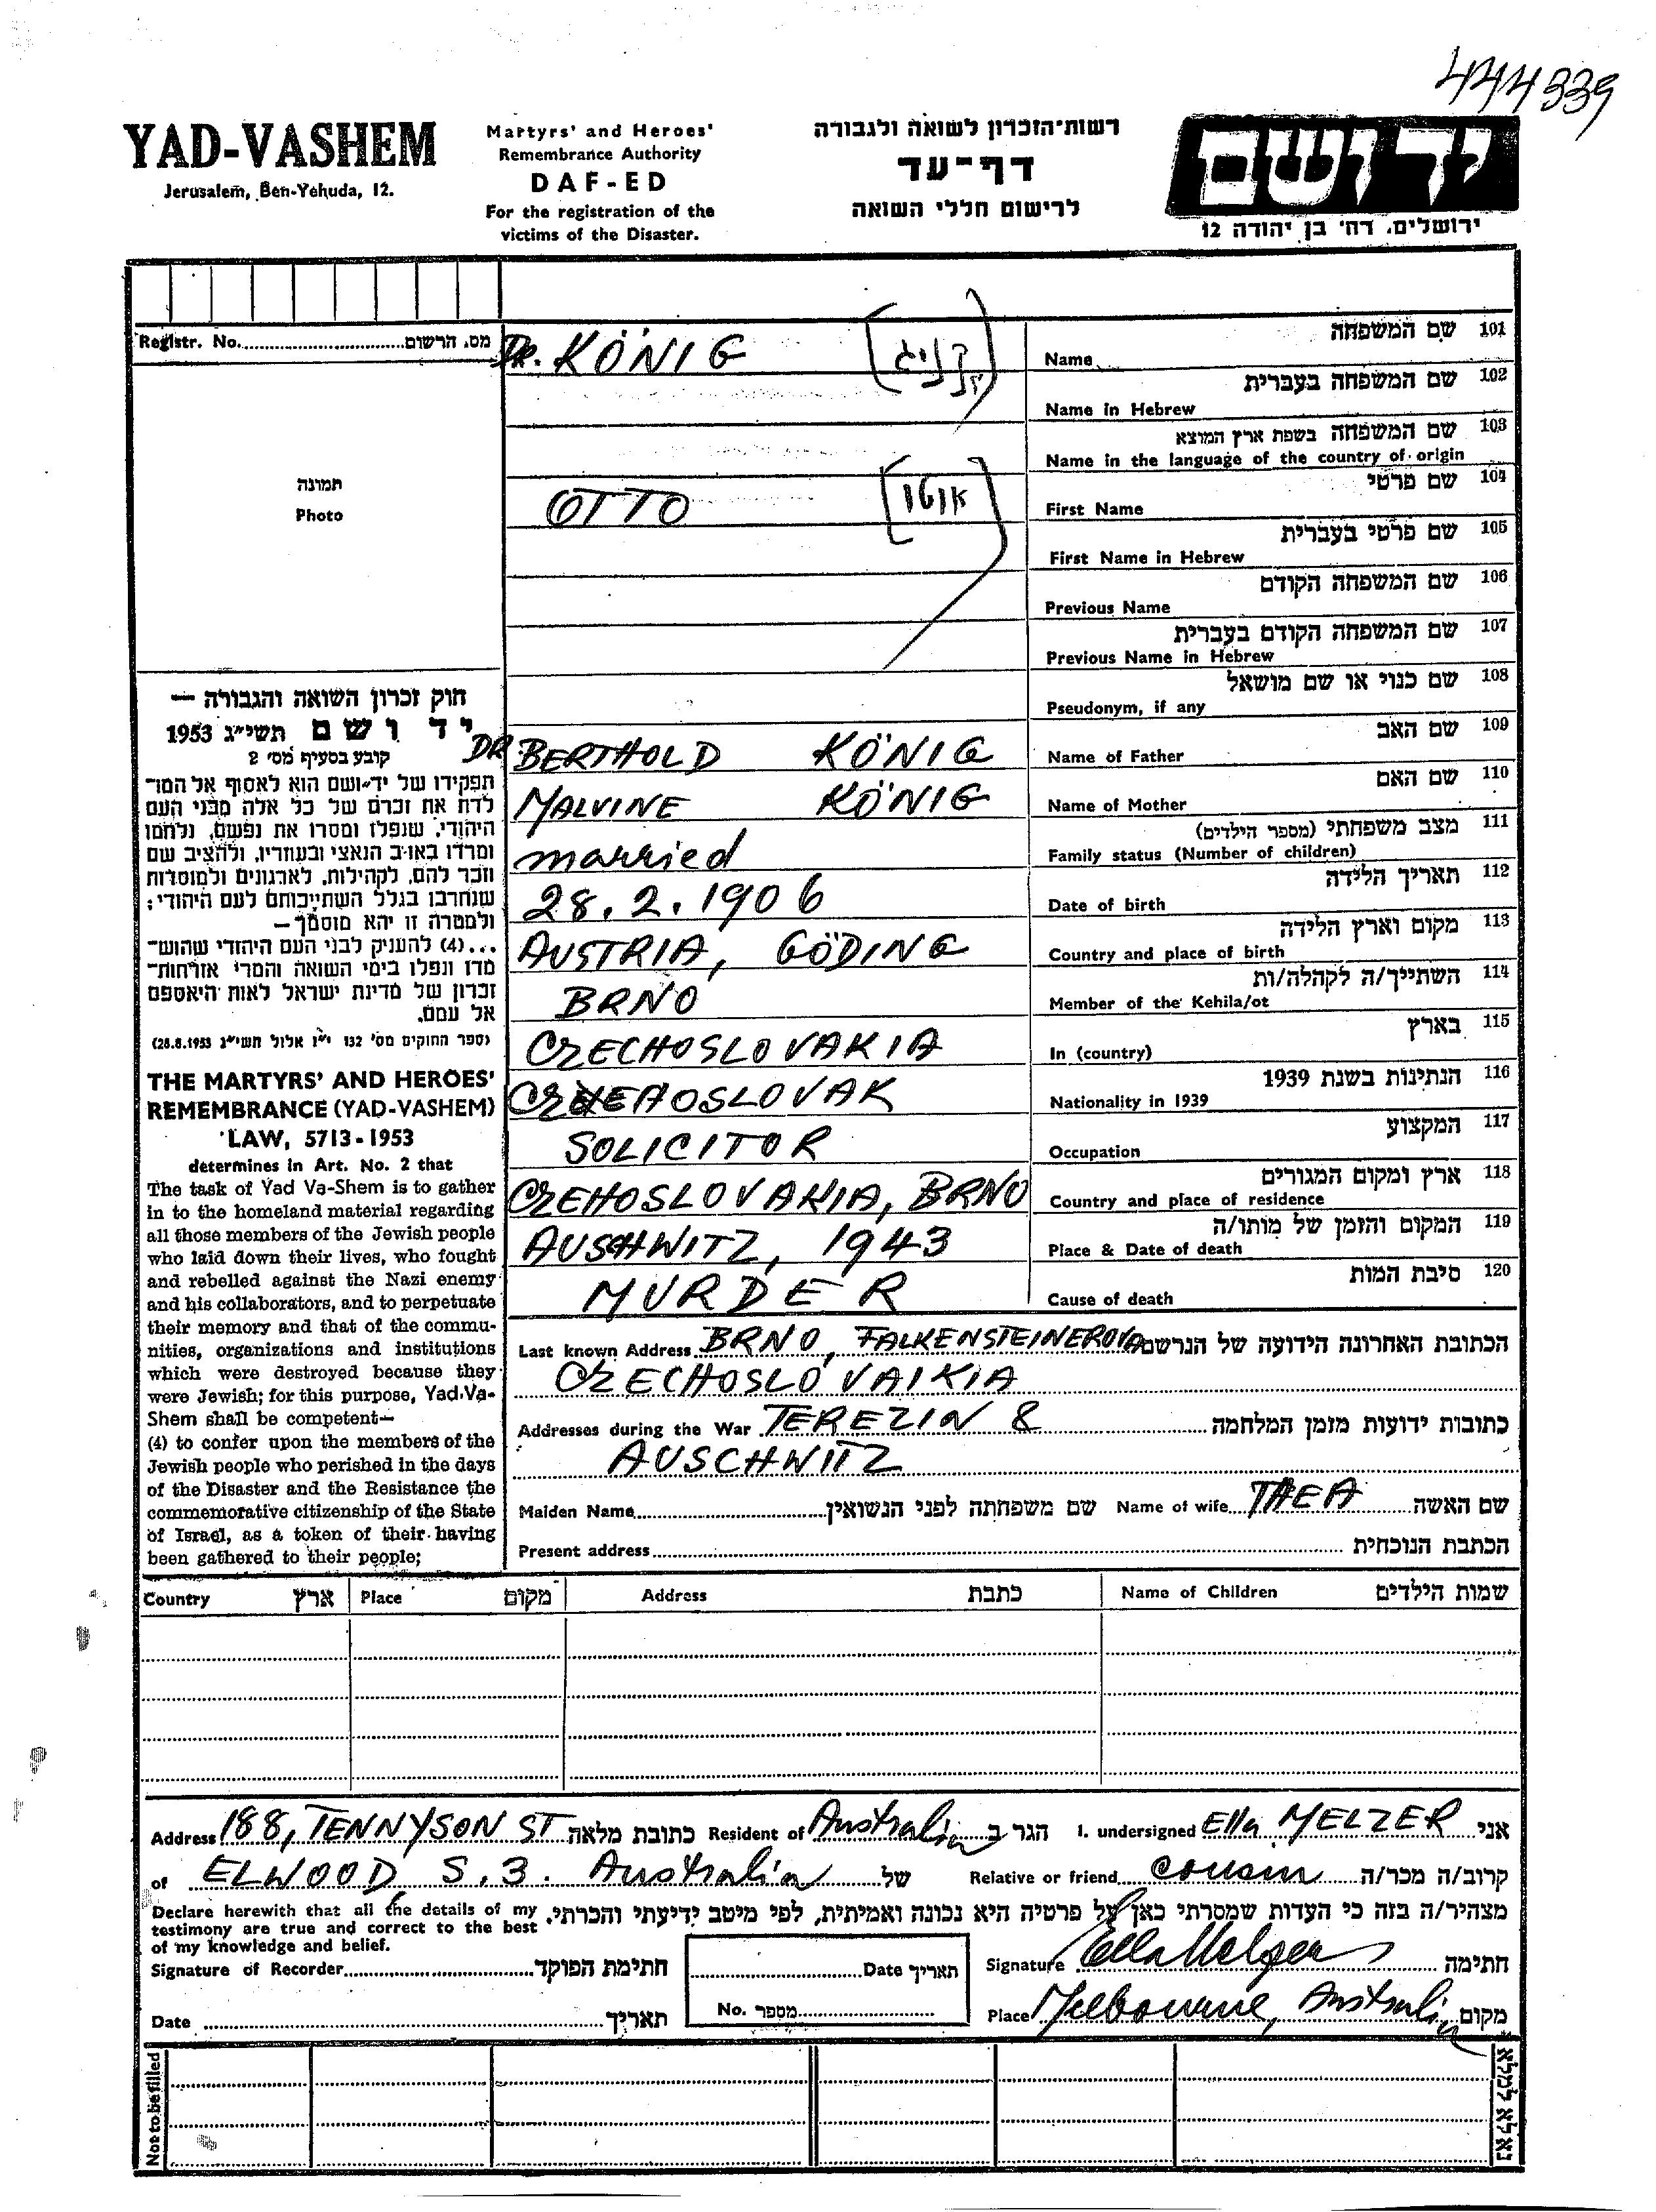 444339
YAD-VASHEM
Jerusalem, Ben-Yehuda, 12.
Martyrs' and Heroes'
Remembrance Authority
DAF-ED
For the registration of the
victims of the Disaster.
רשות-הזכרון לשואה ולגבורה
דף-עד
לרישום חללי השואה
יד ושם
ירושלים, רח' בן יהודה 12
Registr. No. מס. הרשום
תמונה
Photo
Dr. KÖNIG [קניג] שם המשפחה 101
Name
שם המשפחה בעברית 102
Name in Hebrew
שם המשפחה בשפת ארץ המוצא 103
Name in the language of the country of origin
OTTO [אוטו] שם פרטי 104
First Name
שם פרטי בעברית 105
First Name in Hebrew
שם המשפחה הקודם 106
Previous Name
שם המשפחה הקודם בעברית 107
Previous Name in Hebrew
שם כנוי או שם מושאל 108
Pseudonym, if any
DR BERTHOLD KÖNIG שם האב 109
Name of Father
MALVINE KÖNIG שם האם 110
Name of Mother
married מצב משפחתי (מספר הילדים) 111
Family status (Number of children)
28.2.1906 תאריך הלידה 112
Date of birth
AUSTRIA, GÖDING מקום וארץ הלידה 113
Country and place of birth
BRNO השתייך/ה לקהלה/ות 114
Member of the Kehila/ot
CZECHOSLOVAKIA בארץ 115
In (country)
CZEHOSLOVAK הנתינות בשנת 1939 116
Nationality in 1939
SOLICITOR המקצוע 117
Occupation
CZEHOSLOVAKIA, BRNO ארץ ומקום המגורים 118
Country and place of residence
AUSCHWITZ, 1943 המקום והזמן של מותו/ה 119
Place & Date of death
MURDER סיבת המות 120
Cause of death
חוק זכרון השואה והגבורה —
יד ושם תשי"ג 1953
קובע בסעיף מס' 2
תפקידו של יד-ושם הוא לאסוף אל המו-
לדת את זכרם של כל אלה מבני העם
היהודי, שנפלו ומסרו את נפשם, נלחמו
ומרדו באויב הנאצי ובעוזריו, ולהציב שם
וזכר להם, לקהילות, לארגונים ולמוסדות
שנחרבו בגלל השתייכותם לעם היהודי;
ולמטרה זו יהא מוסמך —
...(4) להעניק לבני העם היהודי שהוש-
מדו ונפלו בימי השואה והמרי אזרחות-
זכרון של מדינת ישראל לאות היאספם
אל עמם.
(ספר החוקים מס' 132 י"ז אלול תשי"ג 28.8.1953)
THE MARTYRS' AND HEROES'
REMEMBRANCE (YAD-VASHEM)
LAW, 5713-1953
determines in Art. No. 2 that
The task of Yad Va-Shem is to gather
in to the homeland material regarding
all those members of the Jewish people
who laid down their lives, who fought
and rebelled against the Nazi enemy
and his collaborators, and to perpetuate
their memory and that of the commu-
nities, organizations and institutions
which were destroyed because they
were Jewish; for this purpose, Yad-Va-
Shem shall be competent—
(4) to confer upon the members of the
Jewish people who perished in the days
of the Disaster and the Resistance the
commemorative citizenship of the State
of Israel, as a token of their having
been gathered to their people;
Last known Address BRNO, FALKENSTEINEROVA הכתובת האחרונה הידועה של הנרשם
CZECHOSLOVAIKIA
Addresses during the War TEREZIN & כתובות ידועות מזמן המלחמה
AUSCHWITZ
Maiden Name שם משפחתה לפני הנשואין Name of wife THEA שם האשה
Present address הכתבת הנוכחית
Country ארץ Place מקום Address כתבת Name of Children שמות הילדים
Address 188, TENNYSON ST כתובת מלאה Resident of Australia הגר ב I. undersigned Ella MELZER אני
of ELWOOD, S.3. Australia של Relative or friend cousin קרוב/ה מכר/ה
Declare herewith that all the details of my
testimony are true and correct to the best
of my knowledge and belief.
מצהיר/ה בזה כי העדות שמסרתי כאן על פרטיה היא נכונה ואמיתית, לפי מיטב ידיעתי והכרתי.
Signature of Recorder חתימת הפוקד Date תאריך Signature Ella Melzer חתימה
Date תאריך No. מספר Place Melbourne, Australia מקום
Not to be filled נא לא למלא